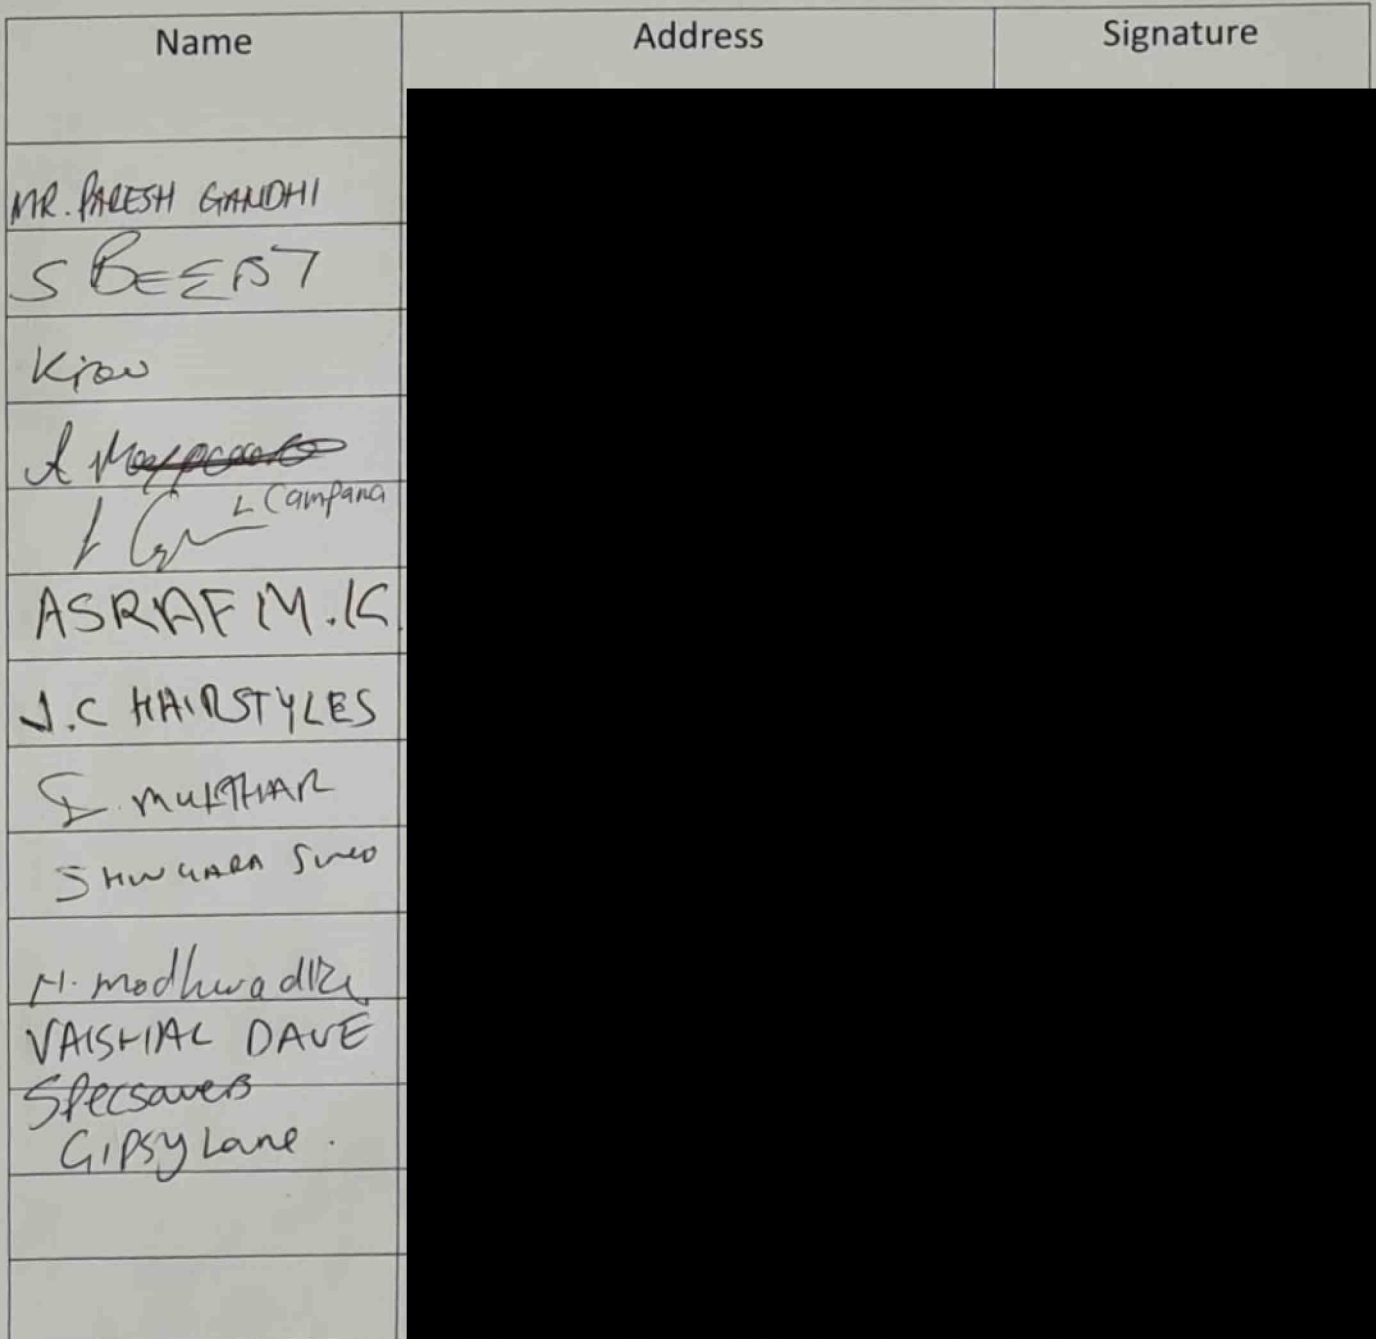 Name Address Signature
MR. PARESH GANDHI
S BEEBT
Kiran
A
L Campana
ASRAF M.K.
J.C HAIRSTYLES
MUKTHAR
SHINGARA
N. modhwadia
VAISHAL DAVE
Specsavers
Gipsy Lane.